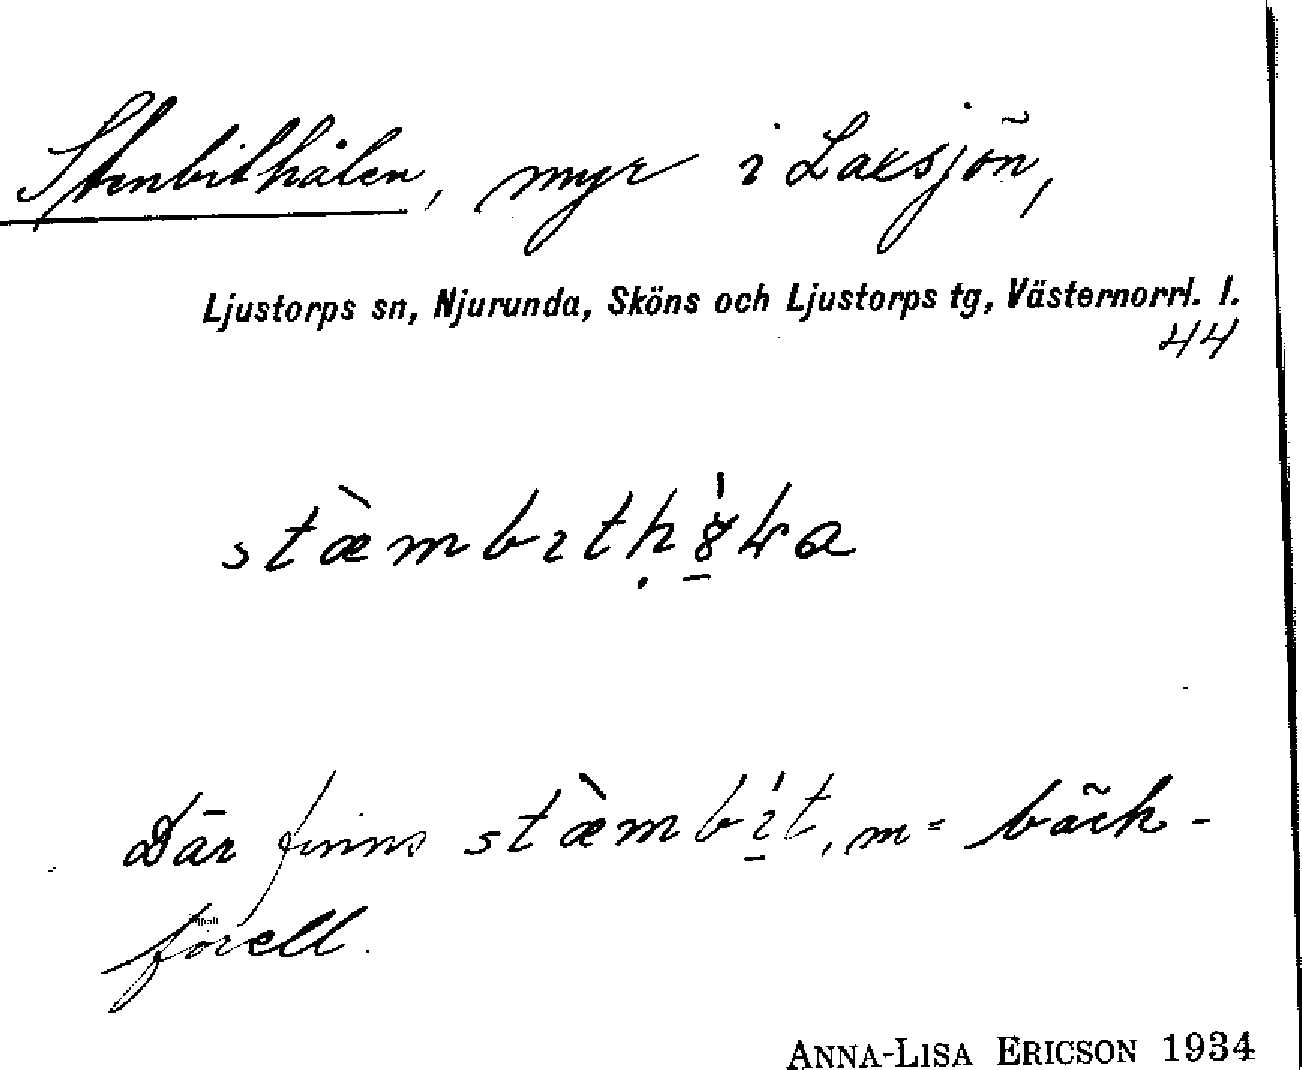 Stenbithålen, myr i Laxsjön,
Ljustorps sn, Njurunda, Sköns och Ljustorps tg, Västernorrl. l.
44
stæ̀mbɩtḥ
Där finns stæ̀mbɩ̱́t, m = bäck-
förell.
ANNA-LISA ERICSON 1934